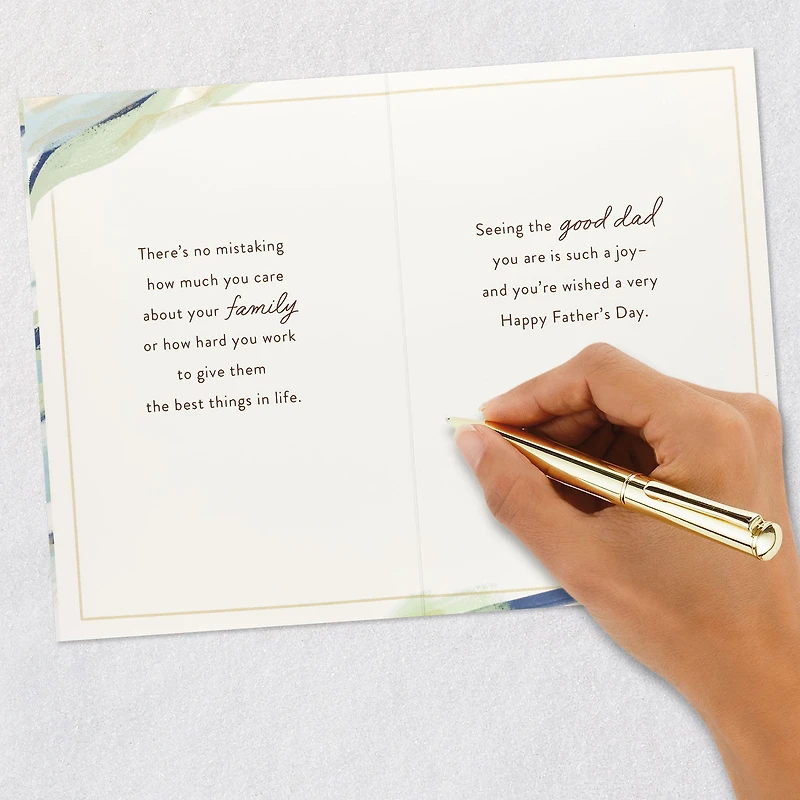 There's no mistaking
how much you care
about your family
or how hard you work
to give them
the best things in life.
Seeing the good dad
you are is such a joy–
and you're wished a very
Happy Father's Day.